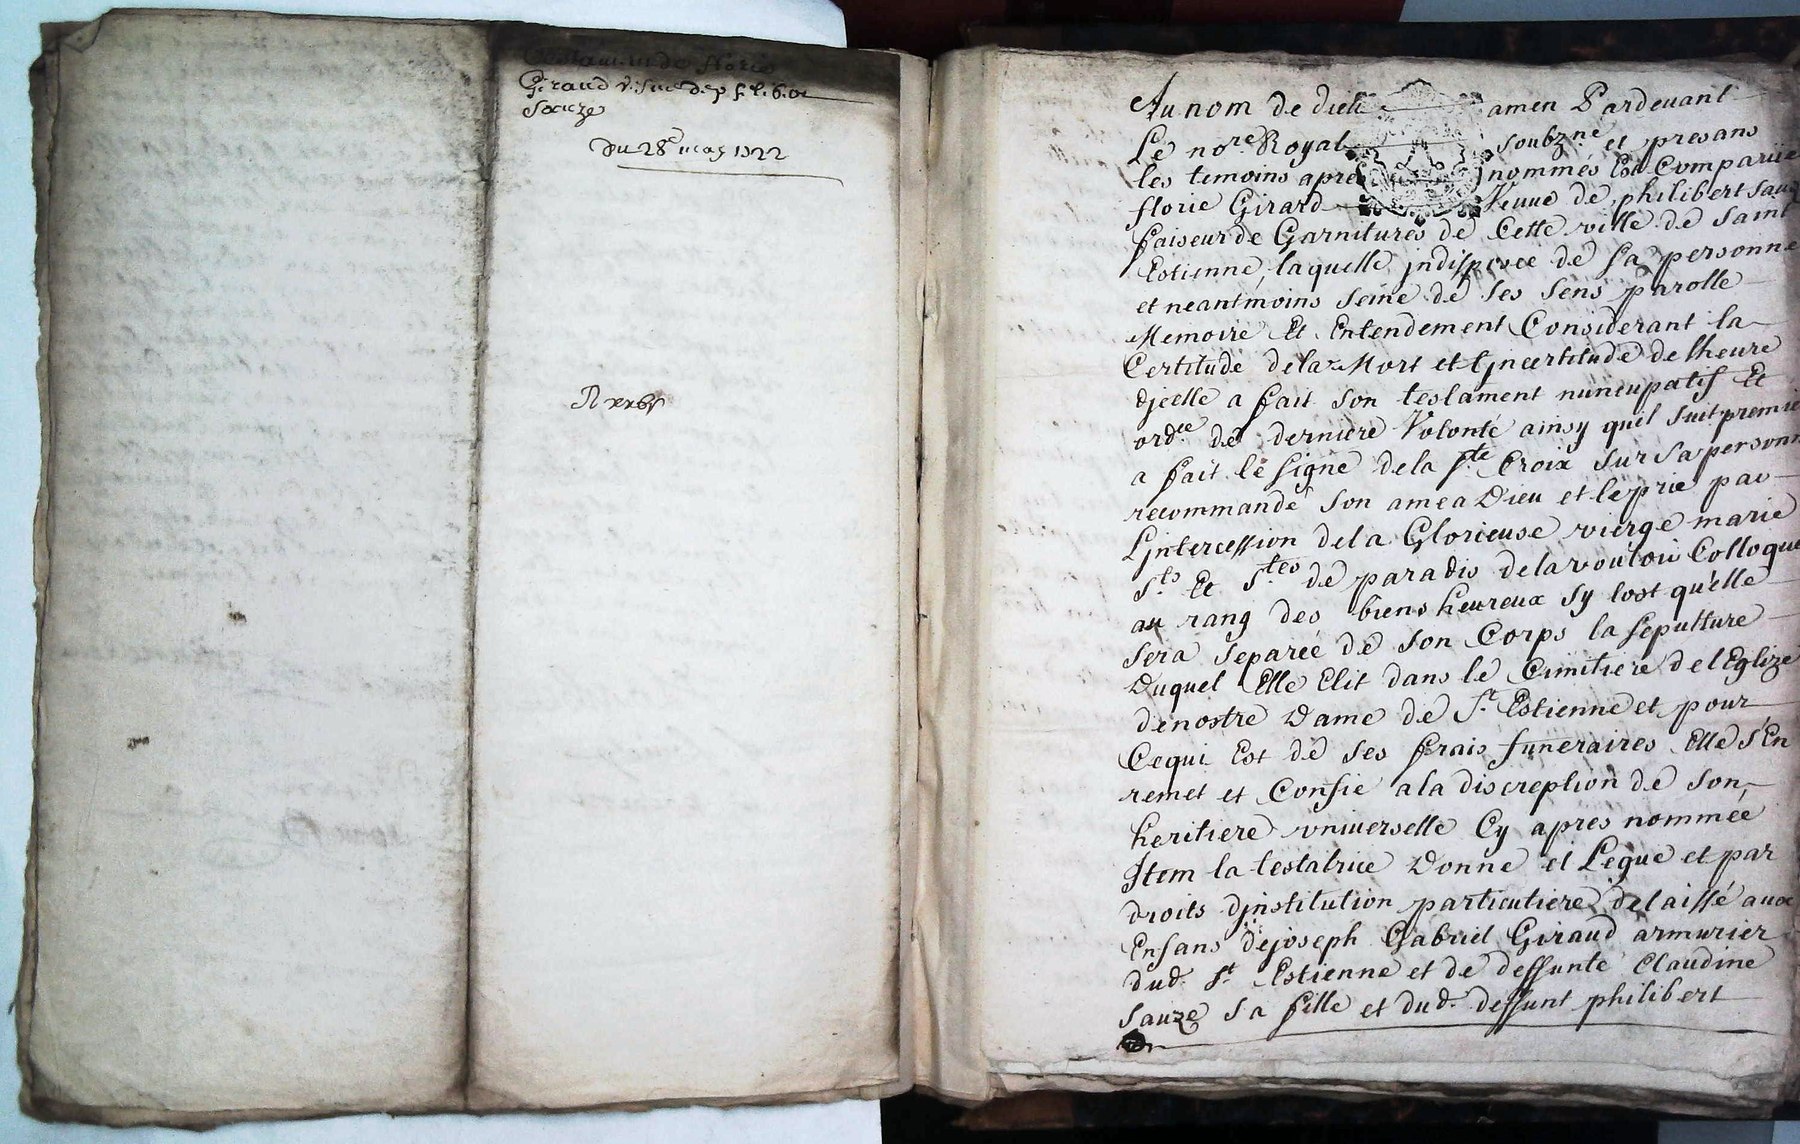 Testament de florie
Giraud veſue de philibert
Sauze
Du 28e may 1722
Au nom de dieu amen Pardeuant
Le nore. Royal soubzne. et presans
les temoins apres nommés Est Comparüe
florie Girard Veuue de philibert Sauze
faiseur de Garnitures de Cette ville de Saint
Estienne, laquelle jndisposée de sa personne
et neantmoins seine de ses sens parolle
Memoire Et Entendement Considerant la
Certitude dela Mort et Ljncertitude de lheure
djcelle a fait son testament nuncupatif Et
ordce. de derniere Volonté ainsy quil suit premie
a fait le signe dela Ste. Croix sur sa personne
recommandé son ame a Dieu et le prie par
Ljntercession dela Glorieuse vierge marie
Sts. Et Stes. de paradis dela vouloir Colloque
au rang des biens heureux sy tost qu'elle
sera separée de son Corps la sepulture
Duquel Elle Elit dans le Cimitiere de l Eglize
de nostre Dame de St. Estienne et pour
Cequi Est de ses frais funeraires Elle s'En
remet et Confie a la discreption de son
heritiere vniuerselle Cy apres nommée
Jtem la testatrice Donne et Legue et par
droits djnstitution particuliere delaissé aux
Enfans de joseph Gabriel Giraud armurier
dud. St Estienne et de deffunte Claudine
Sauze sa fille et dud. deffunt philibert